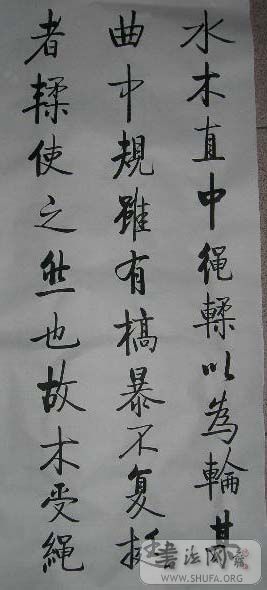 水木直中绳輮以為輪其
曲中規雖有槁暴不复挺
者輮使之然也故木受绳
书法网
WWW.SHUFA.ORG